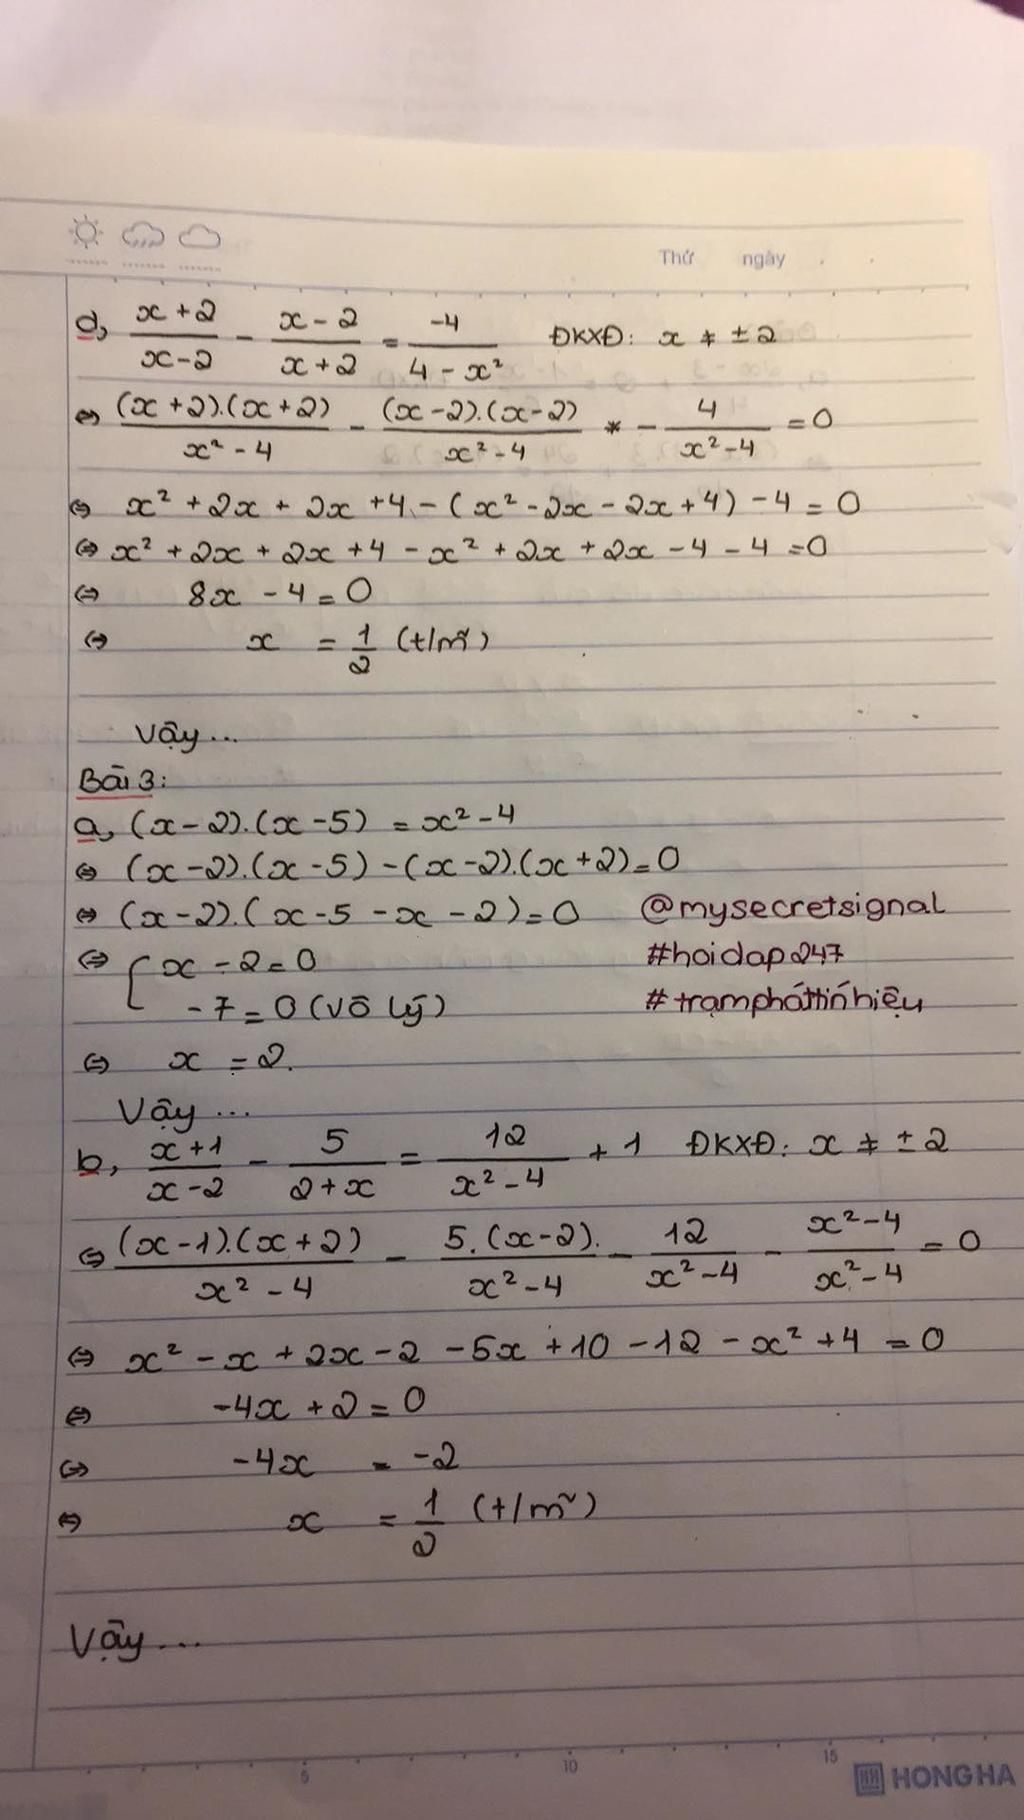 Thứ ngày
d, (x+2)/(x-2) - (x-2)/(x+2) = -4/(4-x²) ĐKXĐ: x ≠ ±2
⇔ (x+2).(x+2)/(x²-4) - (x-2).(x-2)/(x²-4) * - 4/(x²-4) = 0
⇔ x² + 2x + 2x + 4 - (x² - 2x - 2x + 4) - 4 = 0
⇔ x² + 2x + 2x + 4 - x² + 2x + 2x - 4 - 4 = 0
⇔ 8x - 4 = 0
⇔ x = 1/2 (t/m)
Vậy...
Bài 3:
a, (x-2).(x-5) = x²-4
⇔ (x-2).(x-5) - (x-2).(x+2) = 0
⇔ (x-2).(x-5-x-2) = 0 @mysecretsignal
⇔ { x - 2 = 0 #hoidap247
-7 = 0 (vô lý) #trạmpháttínhiệu
⇔ x = 2.
Vậy...
b, (x+1)/(x-2) - 5/(2+x) = 12/(x²-4) + 1 ĐKXĐ: x ≠ ±2
⇔ (x-1).(x+2)/(x²-4) - 5.(x-2)./(x²-4) - 12/(x²-4) - (x²-4)/(x²-4) = 0
⇔ x² - x + 2x - 2 - 5x + 10 - 12 - x² + 4 = 0
⇔ -4x + 2 = 0
⇔ -4x = -2
⇔ x = 1/2 (t/m)
Vậy...
5 10 15
HONG HA